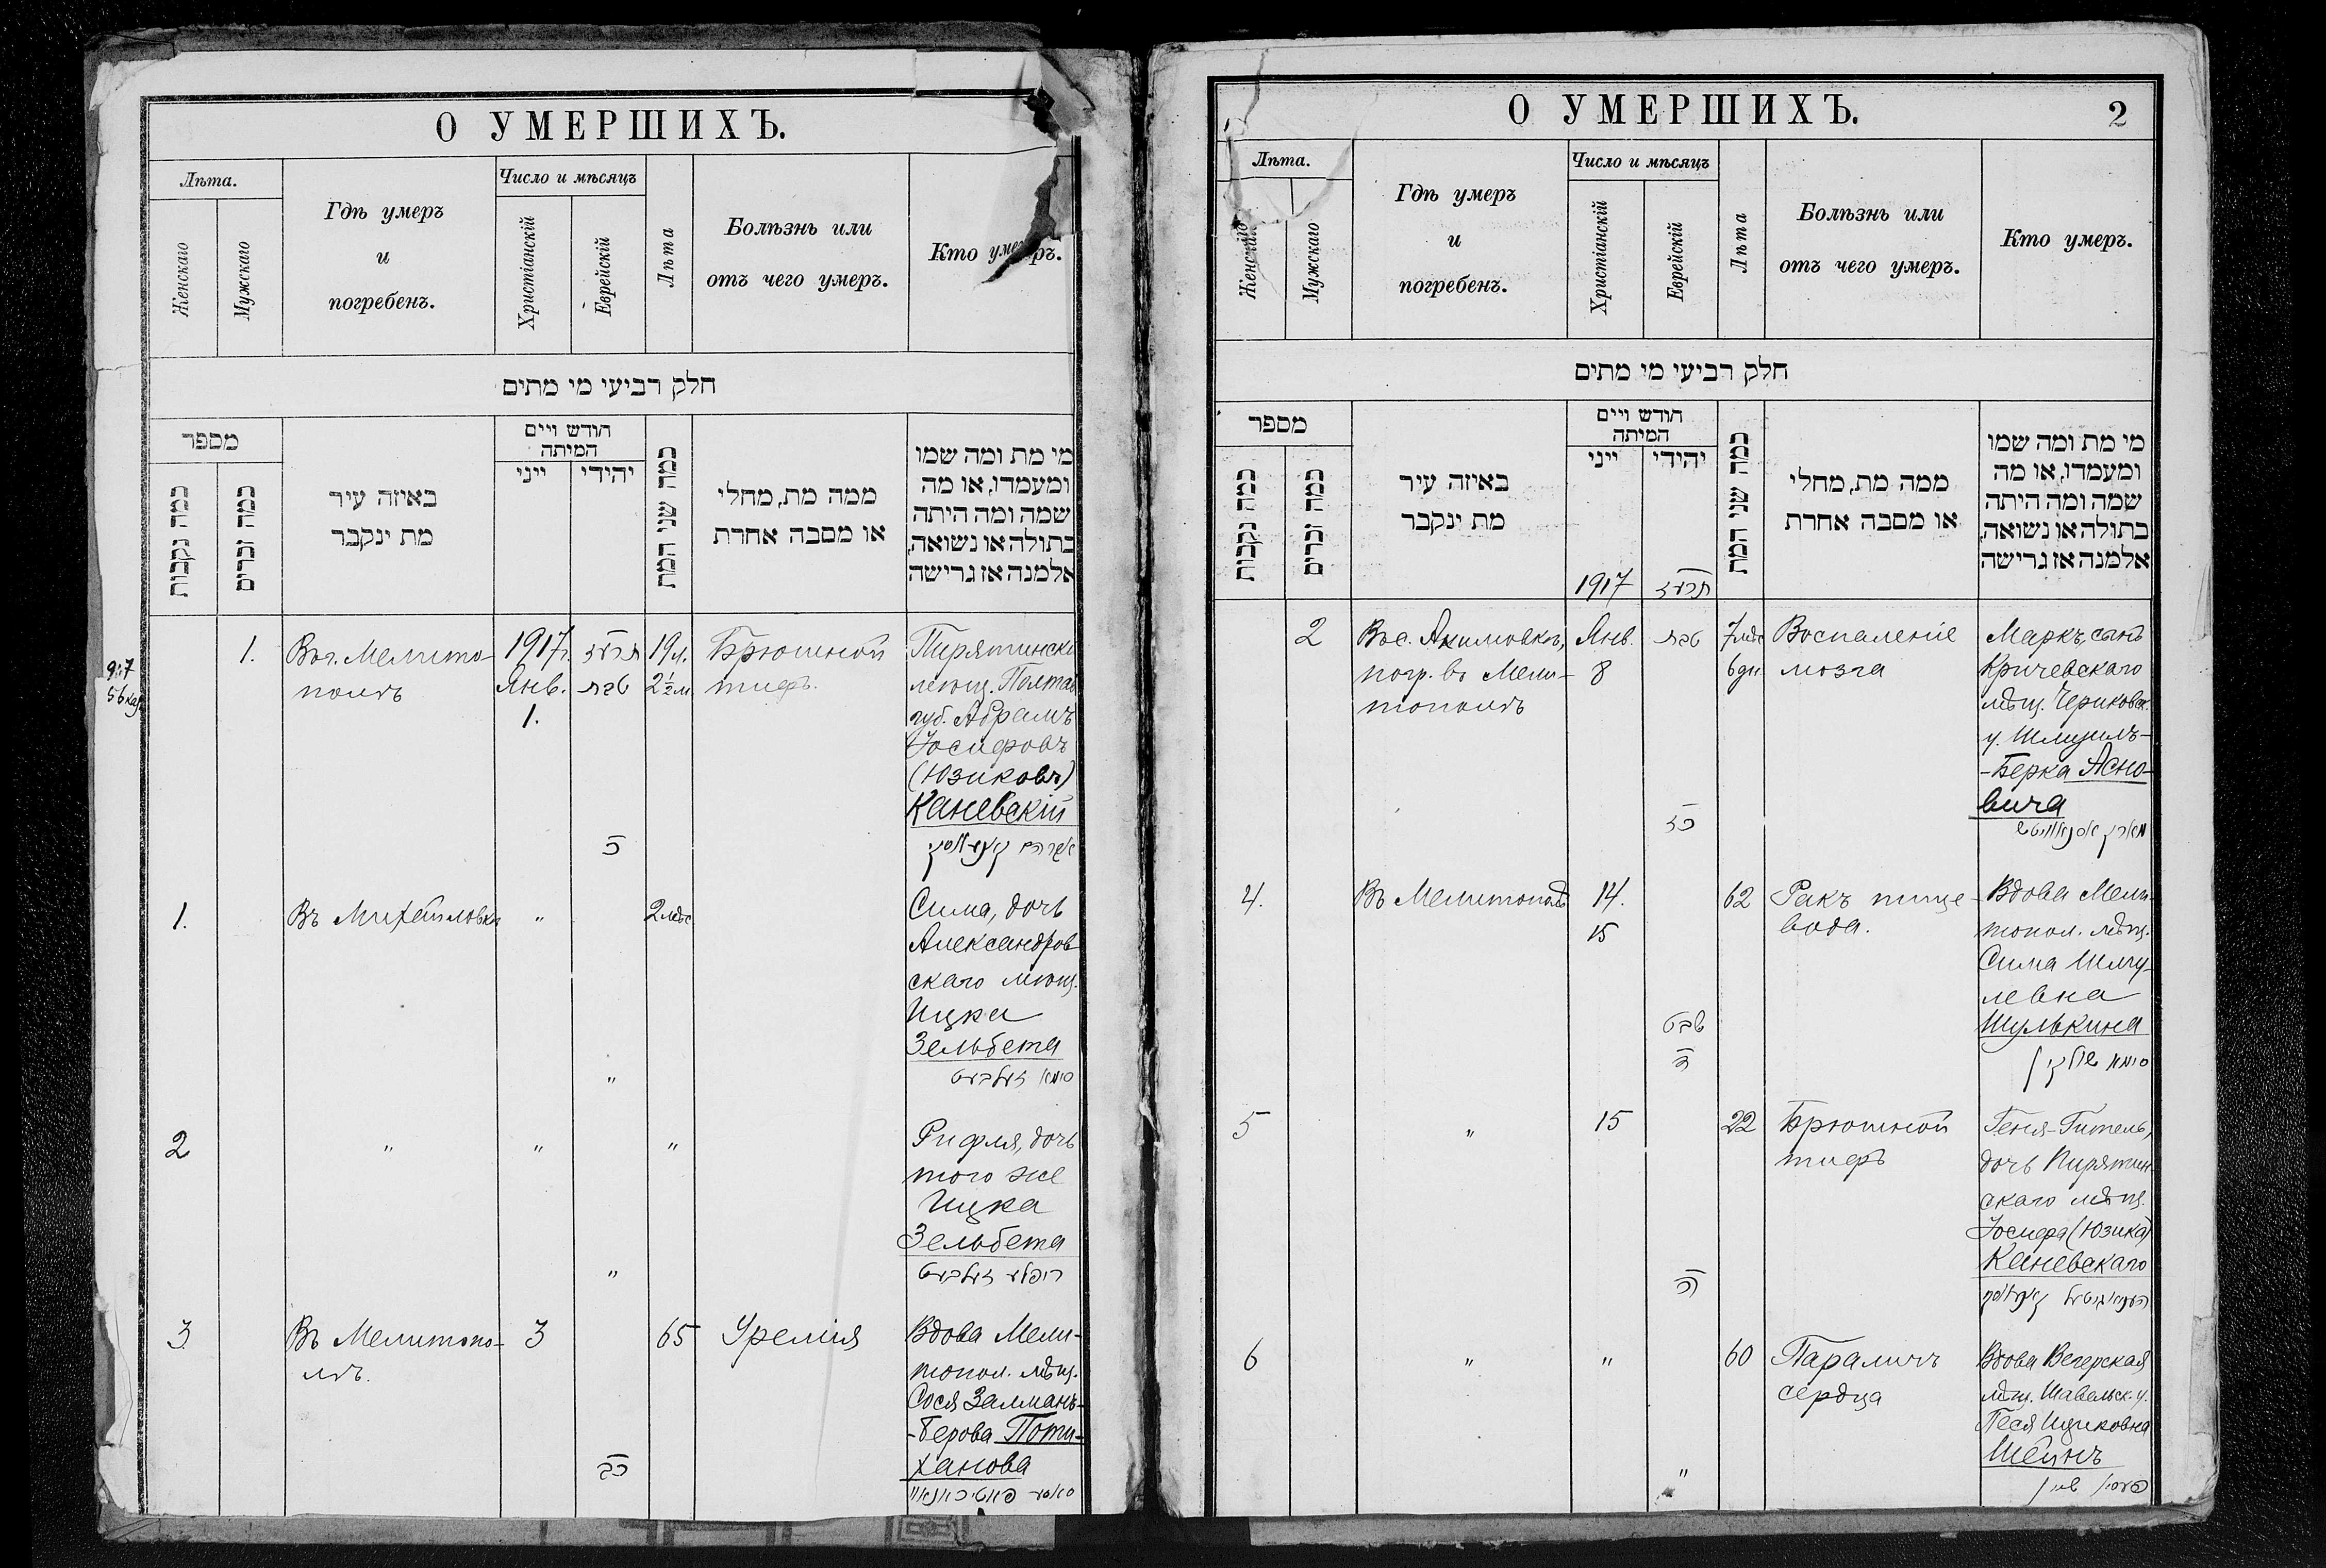 О УМЕРШИХЪ.
Лѣта.
Женскаго
Мужскаго
Гдѣ умеръ
и
погребенъ.
Число и мѣсяцъ
Христіанскій
Еврейскій
Лѣта
Болѣзнь или
отъ чего умеръ.
Кто умеръ.
חלק רביעי מי מתים
מספר
כמה נקבות
כמה זכרים
באיזה עיר
מת ינקבר
חודש ויים
המיתה
ייני
יהידי
כמה שני המת
ממה מת, מחלי
או מסבה אחרת
מי מת ומה שמו
ומעמדו, או מה
שמה ומה היתה
בתולה או נשואה,
אלמנה אז גרישה
917
1.
Въ г. Мелито-
полѣ
1917 г.
Янв.
1.
תרע״ז
טבת
כ
19 л.
2½ м.
Брюшной
тифъ.
Пирятинскі
мѣщ. Полтав
губ. Абрамъ
Іосифовъ
(Юзиковъ)
Каневскій
אברהם קאנעווסקי
1.
Въ Михайловкѣ
"
"
2 мѣс
Сима, дочь
Александров
скаго мѣщ.
Ицка
Зельбета
סימא זעלבעט
2
"
"
"
"
Рифля, дочь
того же
Ицка
Зельбета
ריפלע זעלבעט
3
Въ Мелитопо-
лѣ.
3
כב
65
Уремія
Вдова Мели-
топол. мѣщ.
Сося Залманъ-
-Берова Поти-
ханова
О УМЕРШИХЪ.
2
Лѣта.
Женскаго
Мужскаго
Гдѣ умеръ
и
погребенъ.
Число и мѣсяцъ
Христіанскій
Еврейскій
Лѣта
Болѣзнь или
отъ чего умеръ.
Кто умеръ.
חלק רביעי מי מתים
מספר
כמה נקבות
כמה זכרים
באיזה עיר
מת ינקבר
חודש ויים
המיתה
ייני
יהידי
1917
תרע״ז
כמה שני המת
ממה מת, מחלי
או מסבה אחרת
מי מת ומה שמו
ומעמדו, או מה
שמה ומה היתה
בתולה או נשואה,
אלמנה אז גרישה
2
Въ с. Акимовкѣ,
погр. въ Мели-
тополѣ
Янв.
8
טבת
כז
7 мѣс
6 дн.
Воспаленіе
мозга
Маркъ, сынъ
Кричевскаго
мѣщ. Чериковск.
у. Шмуилъ-
-Берка Асно-
вича
4.
Въ Мелитополѣ
14.
15
שבט
ד
62
Ракъ пище-
вода.
Вдова Мели-
топол. мѣщ.
Сима Шму-
левна
Шулькина
סימא שולקין
5
"
15
ה
22
Брюшной
тифъ
Геня-Гитель,
дочь Пирятин-
скаго мѣщ.
Іосифа (Юзика)
Каневскаго
6
"
"
"
60
Параличъ
сердца
Вдова Вегерская
мѣщ. Шавельск. у.
Песя Ициковна
Шеинъ